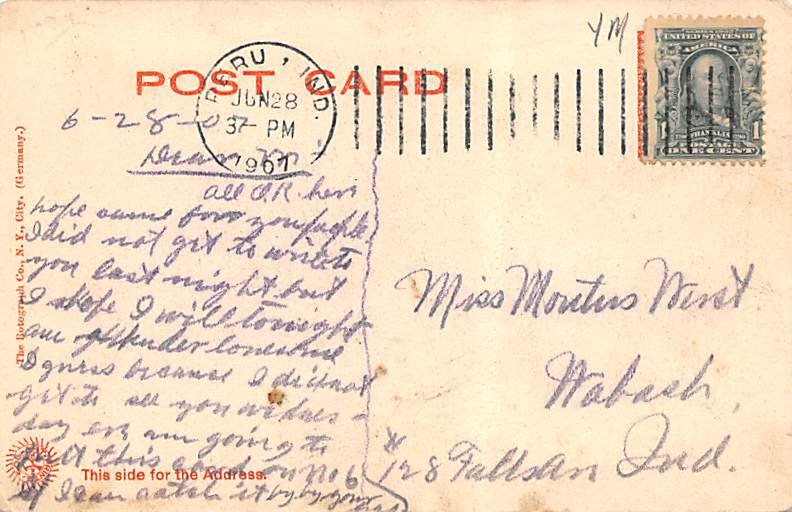 YM
SERIES 1902
UNITED STATES OF
AMERICA
FRANKLIN
1 1
POSTAGE
ONE CENT
PERU, IND.
JUN 28
37- PM
1907
POST CARD
6-28-07
Dear M
all O.K. here
hope same from you people
I did not get to write to
you last night but
I hope I will tonight
am lonesome
I guess because I did not
get to see you wednes-
day eve am going to
this card on No 6
if I can catch it by by your
Miss Wenst
Wabash,
128 Falls Ind.
The Rotograph Co., N. Y., City. (Germany.)
This side for the Address.